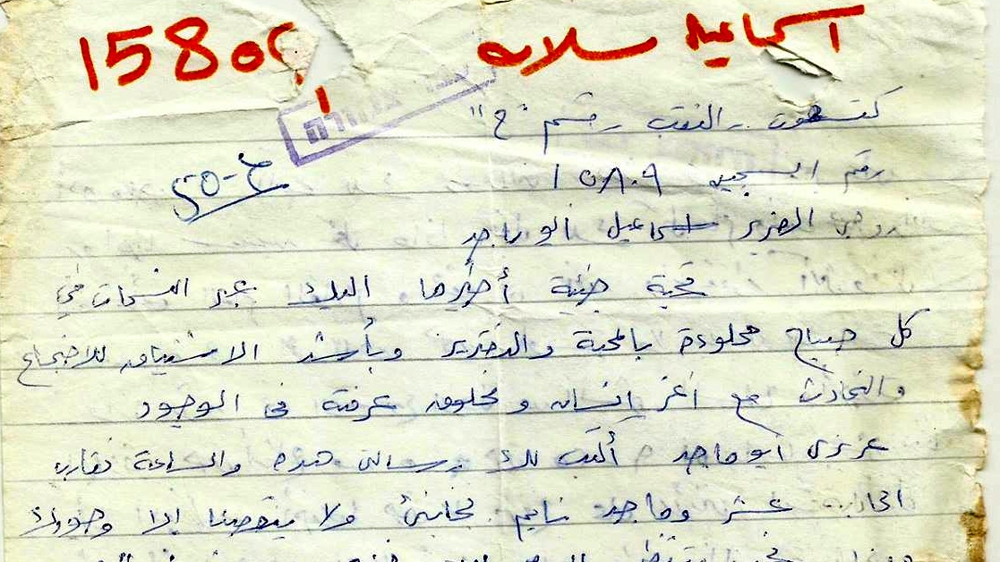 15809
اسماعيل سلامه
كتسعوت - النقب - قسم "ج"
50-ج
رقم السجين ١٥٨٠٩
زوجي العزيز اسماعيل أبو ماجد
تحية طيبة أطيرها اليك عبر النسمات في
كل صباح مملوءة بالمحبة والتقدير وبأشد الاشتياق للاجتماع
والتحادث مع أعز إنسان ومخلوق عرفته في الوجود
عزيزي أبو ماجد أكتب لك رسالتي هذه والساعة تقارب
الحادية عشر وماجد نايم بجانبي ولا ينقصنا إلا وجودك